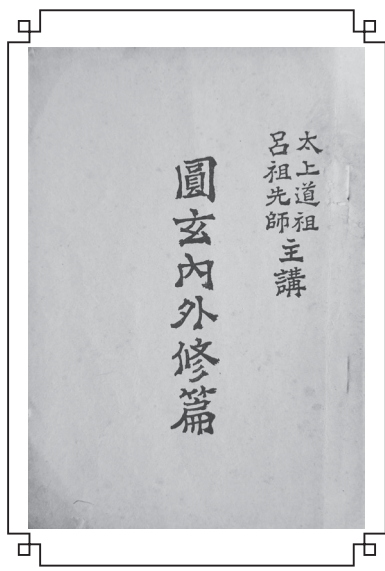 太上道祖
呂祖先師
主講
圓玄內外修篇